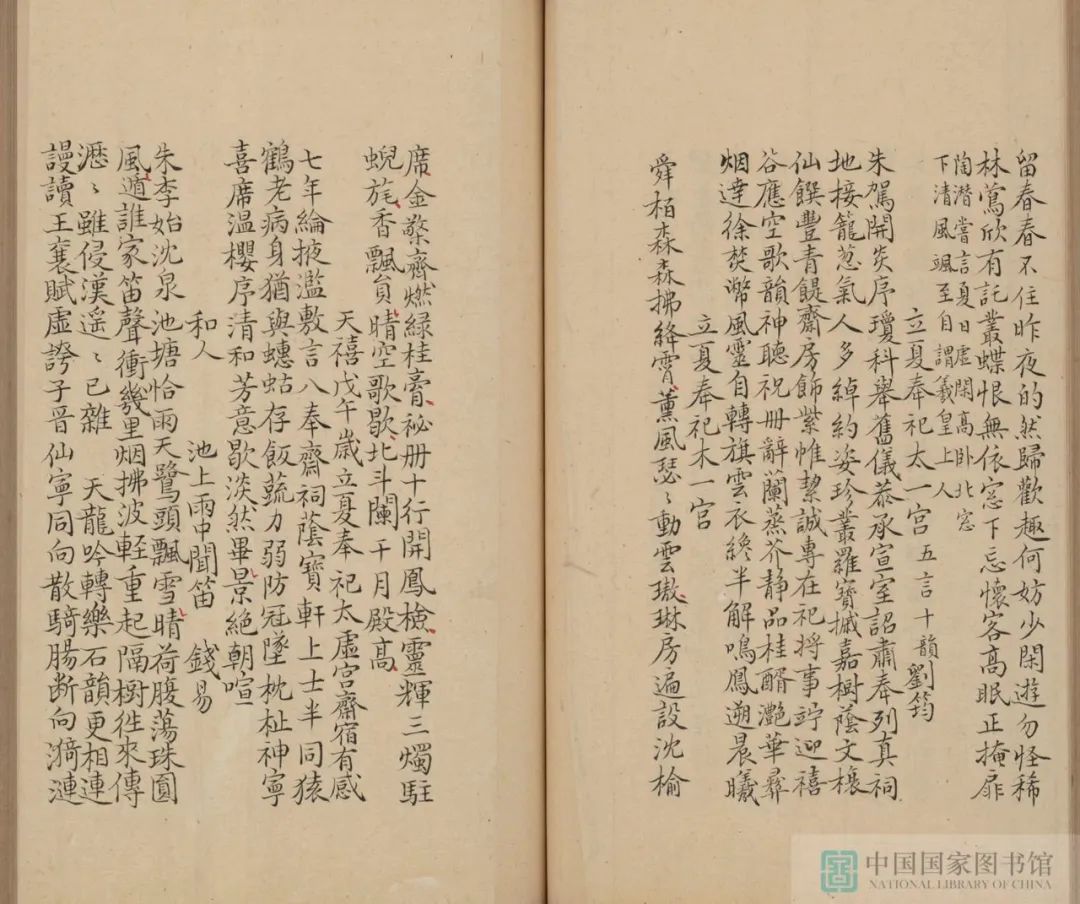 留春春不住昨夜的然歸歡趣何妨少閑遊勿怪稀
林鶯欣有託叢蝶恨無依窓下忘懷客高眠正掩扉
陶潜嘗言夏日虛閑高卧北窓
下清風颯至自謂羲皇上人
立夏奉祀太一宫 五言十韻 劉筠
朱駕開炎序瓊科舉舊儀恭承宣室詔肅奉列真祠
地接籠葱氣人多綽約姿珍叢羅寶槭嘉樹蔭文榱
仙饌豐青䭀齋房飾紫帷潔誠專在祀将事竚迎禧
谷應空歌韻神聽祝册辭蘭蒸芥静品桂醑灔華彛
烟達徐焚幣風靈自轉旗雲衣纔半解鳴鳳遡晨曦
立夏奉祀木一宫
舜栢森森拂絳霄薰風瑟〻動雲璈琳房遍設沈榆
席金檠齋燃緑桂膏祕册十行開鳳檢靈輝三燭駐
蜺旄香飄負晴空歌歇北斗闌干月殿高
天禧戊午歳立夏奉祀太虛宫齋宿有感
七年綸掖濫敷言八奉齋祠蔭寶軒上士半同猿
鶴老病身猶與蟪蛄存飯蔬力弱防冠墜枕杫神寧
喜席温櫻序清和芳意歇淡然畢景絶朝喧
和人 池上雨中聞笛 錢易
朱李始沈泉池塘恰雨天鷺頭飄雪晴荷腹蕩珠圓
風遒誰家笛聲衝幾里烟拂波軽重起隔樹徃來傳
瀝〻雖侵漢遥〻已雜 天龍吟轉樂石韻更相連
謾讀王襃賦虛誇子晉仙寧同向散騎腸断向漪漣
中国国家图书馆
NATIONAL LIBRARY OF CHINA